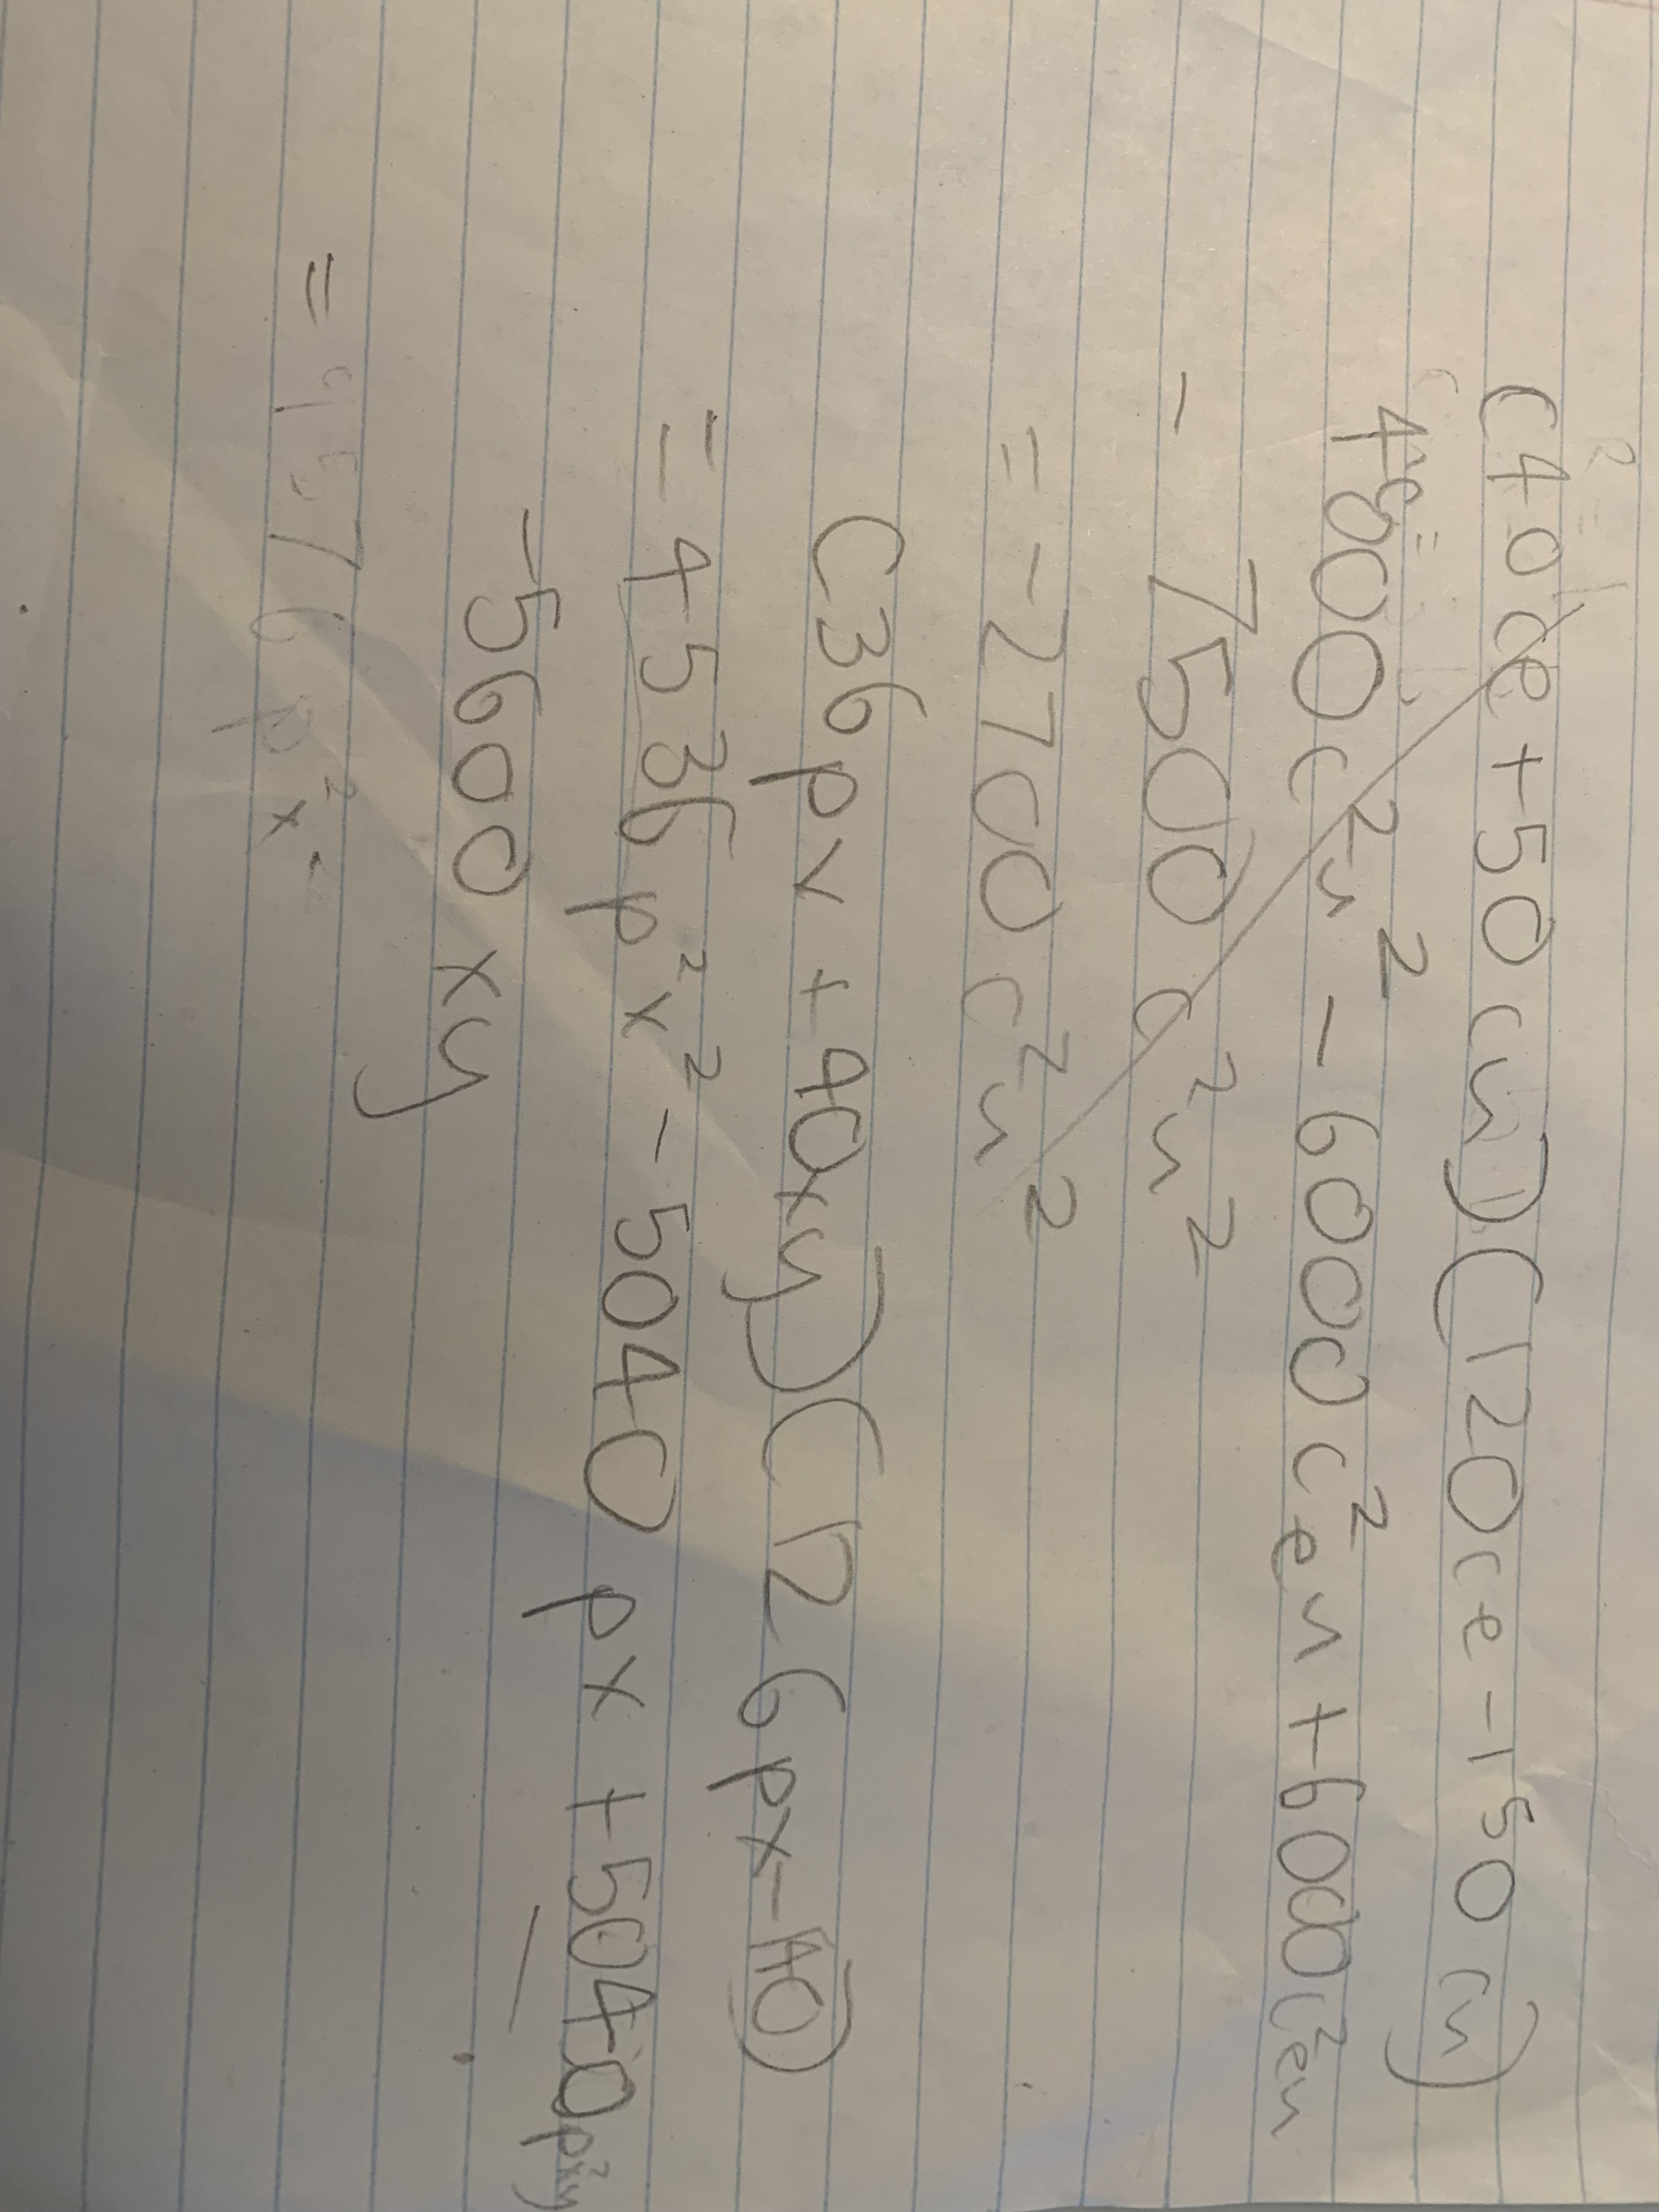 (40ce+50cu)(120ce-150cu)
4800c²u²-6000c²eu+6000c²eu
-7500c²u²
=-2700c²u²
(36px+40xy)(126px-140)
=4536p²x²-5040px+5040px²y
-5600xy